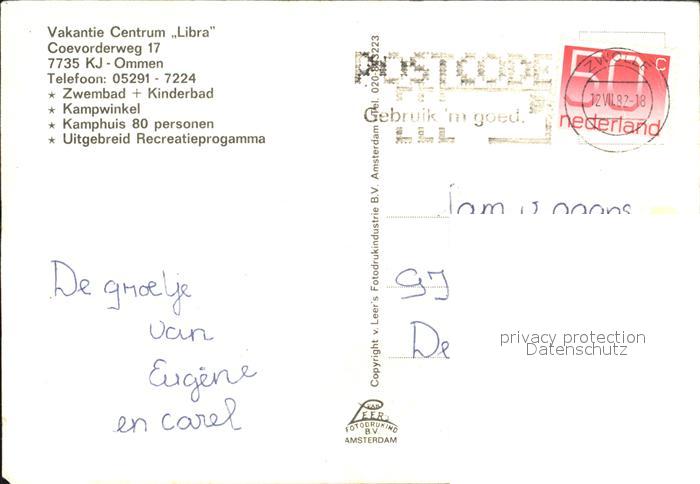 Vakantie Centrum „Libra”
Coevorderweg 17
7735 KJ - Ommen
Telefoon: 05291 - 7224
★ Zwembad + Kinderbad
★ Kampwinkel
★ Kamphuis 80 personen
★ Uitgebreid Recreatieprogamma
De groetje
van
Eugène
en carel
Copyright v. Leer's Fotodrukindustrie B.V. Amsterdam Tel. 020-
VAN
LEER'S
FOTODRUKIND
B.V.
AMSTERDAM
POSTCODE
Gebruik 'm goed.
ZWOLLE
12 VII.82-18
50 C
nederland
Fam
De
privacy protection
Datenschutz